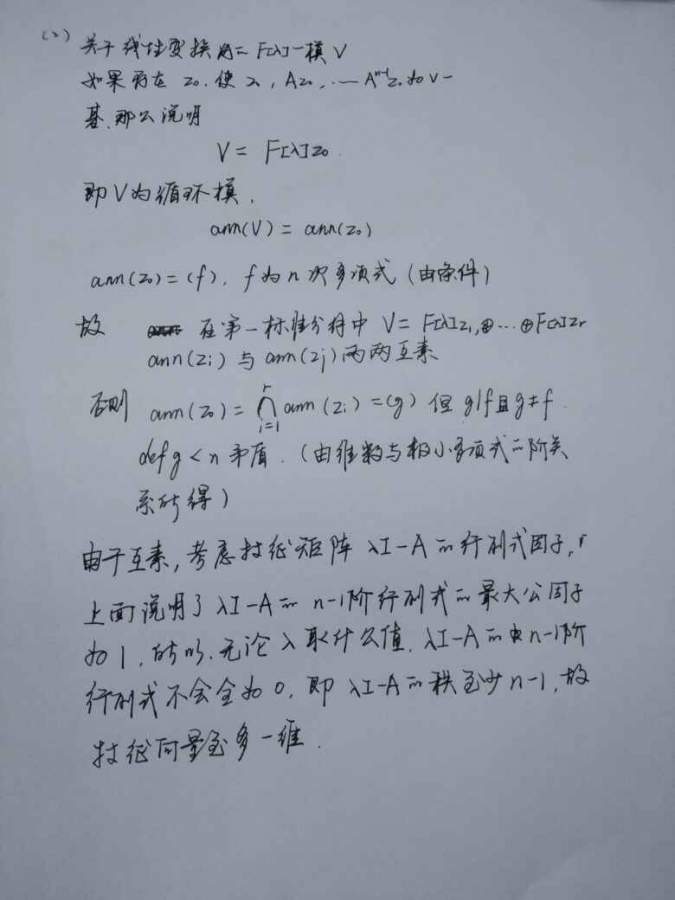 (2) 关于线性变换A的F[λ]-模V
如果存在 z₀, 使 z₀, Az₀, … Aⁿ⁻¹z₀ 为V一
基,那么说明
V = F[λ]z₀.
即V为循环模,
ann(V) = ann(z₀)
ann(z₀)=(f), f为n次多项式(由条件)
故 在第一标准分解中 V= F[λ]z₁,⊕…⊕F[λ]zr
ann(zi)与ann(zj)两两互素
否则 ann(z₀)= ⋂ᵢ₌₁ʳ ann(zi)=(g) 但 g|f且g≠f.
defg < n 矛盾. (由维数与极小多项式的阶关
系所得)
由于互素, 考虑特征矩阵 λI-A的行列式因子,
上面说明了 λI-A的 n-1阶行列式的最大公因子
为1, 所以, 无论λ取什么值, λI-A的n-1阶
行列式不会全为0, 即 λI-A的秩至少n-1, 故
特征向量至多一维.